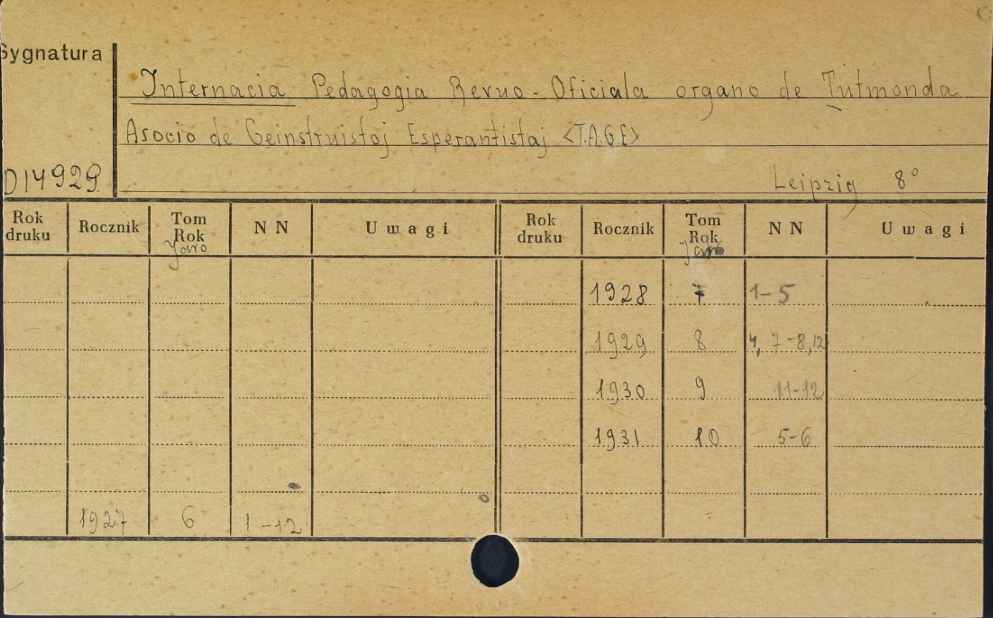 Sygnatura
Internacia Pedagogia Revuo - Oficiala organo de Tutmonda
Asocio de Geinstruistoj Esperantistaj <T.A.G.E>
D14929
Leipzig 8°
Rok druku Rocznik Tom Rok Jaro N N Uwagi Rok druku Rocznik Tom Rok Jaro N N Uwagi
1928 7 1-5
1929 8 4, 7-8, 12
1930 9 11-12
1931 10 5-6
1927 6 1-12